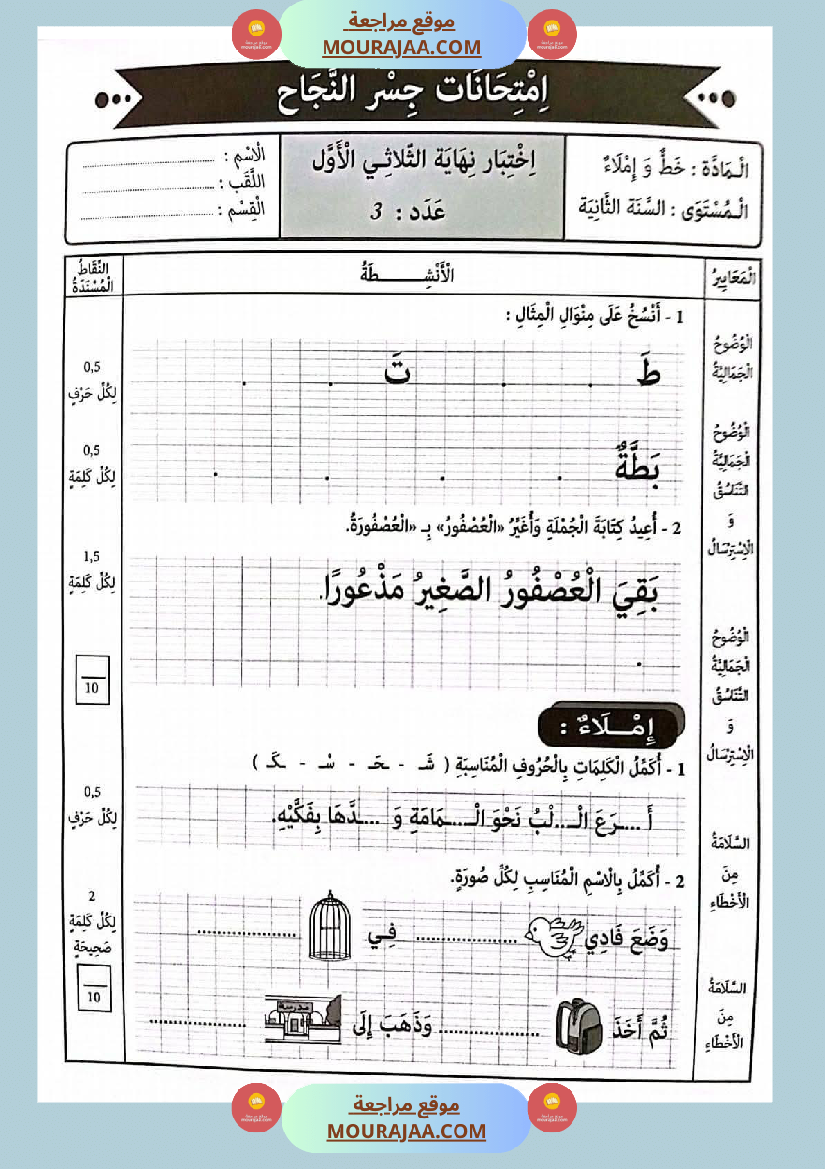 موقع مراجعة
MOURAJAA.COM
اِمْتِحَانَات جِسْر النَّجَاح
الْمَادَّة : خَطٌّ وَ إِمْلَاءٌ
الْمُسْتَوَى : السَّنَة الثَّانِيَة
اِخْتِبَار نِهَايَة الثّلاثِـي الْأَوَّل
عَدَد : 3
الْاسْم : ........................
اللَّقَب : ........................
الْقِسْم : ........................
الْمَعَايِيرُ
الْأَنْشِـــــــطَةُ
النِّقَاطُ الْمُسْنَدَةُ
1 - أَنْسُخُ عَلَى مِنْوَالِ الْمِثَالِ :
الْوُضُوحُ
الْجَمَالِيَّةُ
طَ . . تَ . .
0,5
لِكُلِّ حَرْفٍ
الْوُضُوحُ
الْجَمَالِيَّةُ
التَّنَاسُقُ
وَ
الْاِسْتِرْسَالُ
بَطَّةٌ . . . .
0,5
لِكُلِّ كَلِمَةٍ
2 - أُعِيدُ كِتَابَةَ الْجُمْلَةِ وَأُغَيِّرُ «الْعُصْفُورُ» بِـ «الْعُصْفُورَةُ.
بَقِيَ الْعُصْفُورُ الصَّغِيرُ مَذْعُورًا.
.
1,5
لِكُلِّ كَلِمَةٍ
الْوُضُوحُ
الْجَمَالِيَّةُ
التَّنَاسُقُ
وَ
الْاِسْتِرْسَالُ
10
إِمْـــلَاءٌ :
1 - أُكَمِّلُ الْكَلِمَاتِ بِالْحُرُوفِ الْمُنَاسِبَةِ ( شَـ - حَـ - سْـ - كَـ )
أَ ....ـرَعَ الْـ....ـلْبُ نَحْوَ الْـ....ـمَامَةِ وَ ....ـدَّهَا بِفَكَّيْهِ.
0,5
لِكُلِّ حَرْفٍ
السَّلَامَةُ
مِنَ
الْأَخْطَاءِ
2 - أُكَمِّلُ بِالْاسْمِ الْمُنَاسِبِ لِكُلِّ صُورَةٍ.
وَضَعَ فَادِي .................... فِـي ....................
2
لِكُلِّ كَلِمَةٍ
صَحِيحَةٍ
10
السَّلَامَةُ
مِنَ
الْأَخْطَاءِ
ثُمَّ أَخَذَ .................... وَذَهَبَ إِلَى ....................
مدرسة
موقع مراجعة
MOURAJAA.COM